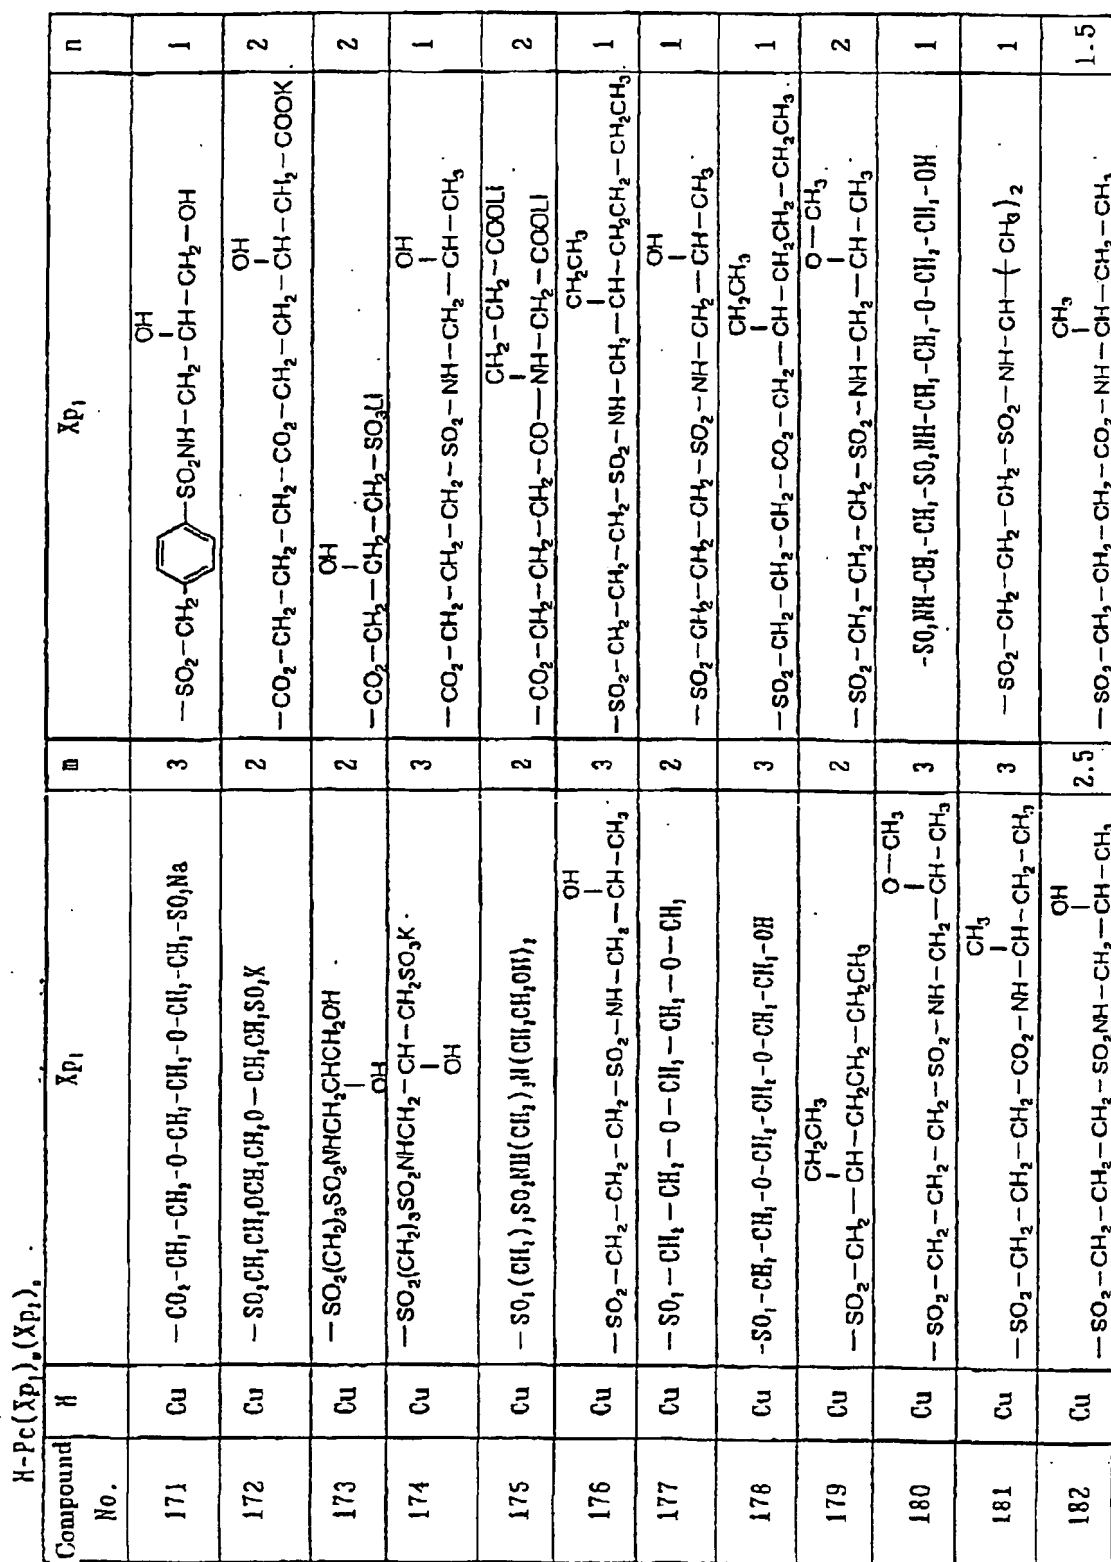 M-Pc(Xp₁)ₘ(Xp₂)ₙ
Compound No. M Xp₁ m Xp₁ n
171 Cu —CO₂-CH₂-CH₂-O-CH₂-CH₂-O-CH₂-CH₂-SO₃Na 3 —SO₂—CH₂—⌬—SO₂NH—CH₂—CH(OH)—CH₂—OH 1
172 Cu —SO₂CH₂CH₂OCH₂CH₂O—CH₂CH₂SO₃K 2 —CO₂—CH₂—CH₂—CH₂—CO₂—CH₂—CH₂—CH₂—CH(OH)—CH₂—COOK 2
173 Cu —SO₂(CH₂)₃SO₂NHCH₂CH(OH)CH₂OH 2 —CO₂—CH₂—CH₂(OH)—CH₂—SO₃Li 2
174 Cu —SO₂(CH₂)₃SO₂NHCH₂—CH(OH)—CH₂SO₃K 3 —CO₂—CH₂—CH₂—CH₂—SO₂—NH—CH₂—CH(OH)—CH₃ 1
175 Cu —SO₂(CH₂)₃SO₂NH(CH₂)₃N(CH₂CH₂OH)₂ 2 —CO₂—CH₂—CH₂—CH₂—CO—NH(CH₂—CH₂—COOLi)—CH₂—CH₂—COOLi 2
176 Cu —SO₂—CH₂—CH₂—CH₂—SO₂—NH—CH₂—CH(OH)—CH₃ 3 —SO₂—CH₂—CH₂—CH₂—SO₂—NH—CH₂—CH(CH₂CH₃)—CH₂CH₂—CH₂CH₃ 1
177 Cu —SO₂—CH₂—CH₂—O—CH₂—CH₂—O—CH₃ 2 —SO₂—CH₂—CH₂—CH₂—SO₂—NH—CH₂—CH(OH)—CH₃ 1
178 Cu -SO₂-CH₂-CH₂-O-CH₂-CH₂-O-CH₂-CH₂-OH 3 —SO₂—CH₂—CH₂—CH₂—CO₂—CH₂—CH(CH₂CH₃)—CH₂CH₂—CH₂CH₃ 1
179 Cu —SO₂—CH₂—CH(CH₂CH₃)—CH₂CH₂—CH₂CH₃ 2 —SO₂—CH₂—CH₂—CH₂—SO₂—NH—CH₂—CH(O—CH₃)—CH₃ 2
180 Cu —SO₂—CH₂—CH₂—CH₂—SO₂—NH—CH₂—CH(O—CH₃)—CH₃ 3 -SO₂NH-CH₂-CH₂-SO₂NH-CH₂-CH₂-O-CH₂-CH₂-OH 1
181 Cu —SO₂—CH₂—CH₂—CH₂—CO₂—NH—CH(CH₃)—CH₂—CH₃ 3 —SO₂—CH₂—CH₂—CH₂—SO₂—NH—CH—(CH₃)₂ 1
182 Cu —SO₂—CH₂—CH₂—CH₂—SO₂NH—CH₂—CH(OH)—CH₃ 2.5 —SO₂—CH₂—CH₂—CH₂—CO₂—NH—CH(CH₃)—CH₂—CH₃ 1.5